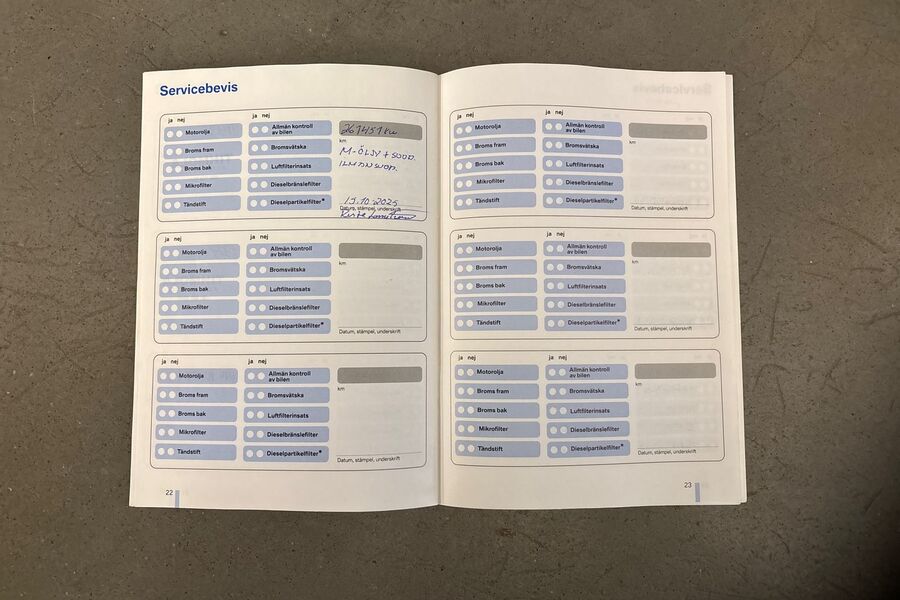 Servicebevis
ja nej
ja nej
Motorolja
Allmän kontroll
av bilen
Broms fram
Bromsvätska
Broms bak
Luftfilterinsats
Mikrofilter
Dieselbränslefilter
Tändstift
Dieselpartikelfilter*
261451 km
km
M-ÖLJY + SUOD.
ILMANSUOD.
13.10.2025
Datum, stämpel, underskrift
ja nej
ja nej
Motorolja
Allmän kontroll
av bilen
Broms fram
Bromsvätska
Broms bak
Luftfilterinsats
Mikrofilter
Dieselbränslefilter
Tändstift
Dieselpartikelfilter*
km
Datum, stämpel, underskrift
ja nej
ja nej
Motorolja
Allmän kontroll
av bilen
Broms fram
Bromsvätska
Broms bak
Luftfilterinsats
Mikrofilter
Dieselbränslefilter
Tändstift
Dieselpartikelfilter*
km
Datum, stämpel, underskrift
22
ja nej
ja nej
Motorolja
Allmän kontroll
av bilen
Broms fram
Bromsvätska
Broms bak
Luftfilterinsats
Mikrofilter
Dieselbränslefilter
Tändstift
Dieselpartikelfilter*
km
Datum, stämpel, underskrift
ja nej
ja nej
Motorolja
Allmän kontroll
av bilen
Broms fram
Bromsvätska
Broms bak
Luftfilterinsats
Mikrofilter
Dieselbränslefilter
Tändstift
Dieselpartikelfilter*
km
Datum, stämpel, underskrift
ja nej
ja nej
Motorolja
Allmän kontroll
av bilen
Broms fram
Bromsvätska
Broms bak
Luftfilterinsats
Mikrofilter
Dieselbränslefilter
Tändstift
Dieselpartikelfilter*
km
Datum, stämpel, underskrift
23